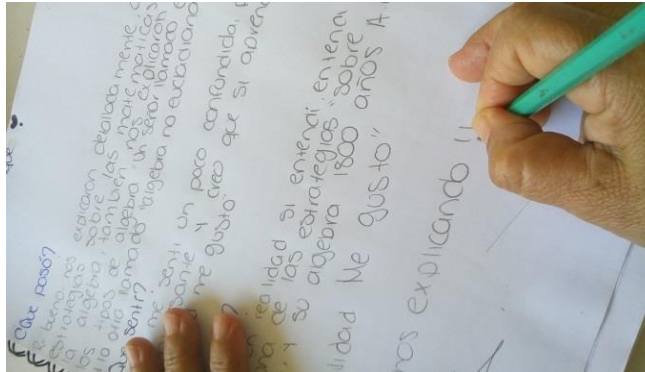 que
¿Que pasó?
bueno nos explicaron detalladamente
estrategias sobre las matemáticas
los algebra, tambien nos explicaron
tipos de algebra un señor llamado
otra llamado "algebra no ecuaciona
sentí?
me sentí un poco confundida,
sante y creo que si aprend
me gustó.
realidad si entendí, entena
de las estrategias "sobre
y su algebra 1800 años A.
lidad Me gustó"
nos explicando !!